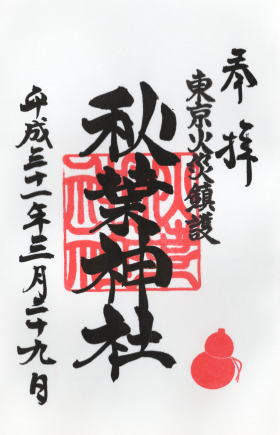 奉拝
東京火災鎮護
秋葉神社
平成三十一年三月二十九日